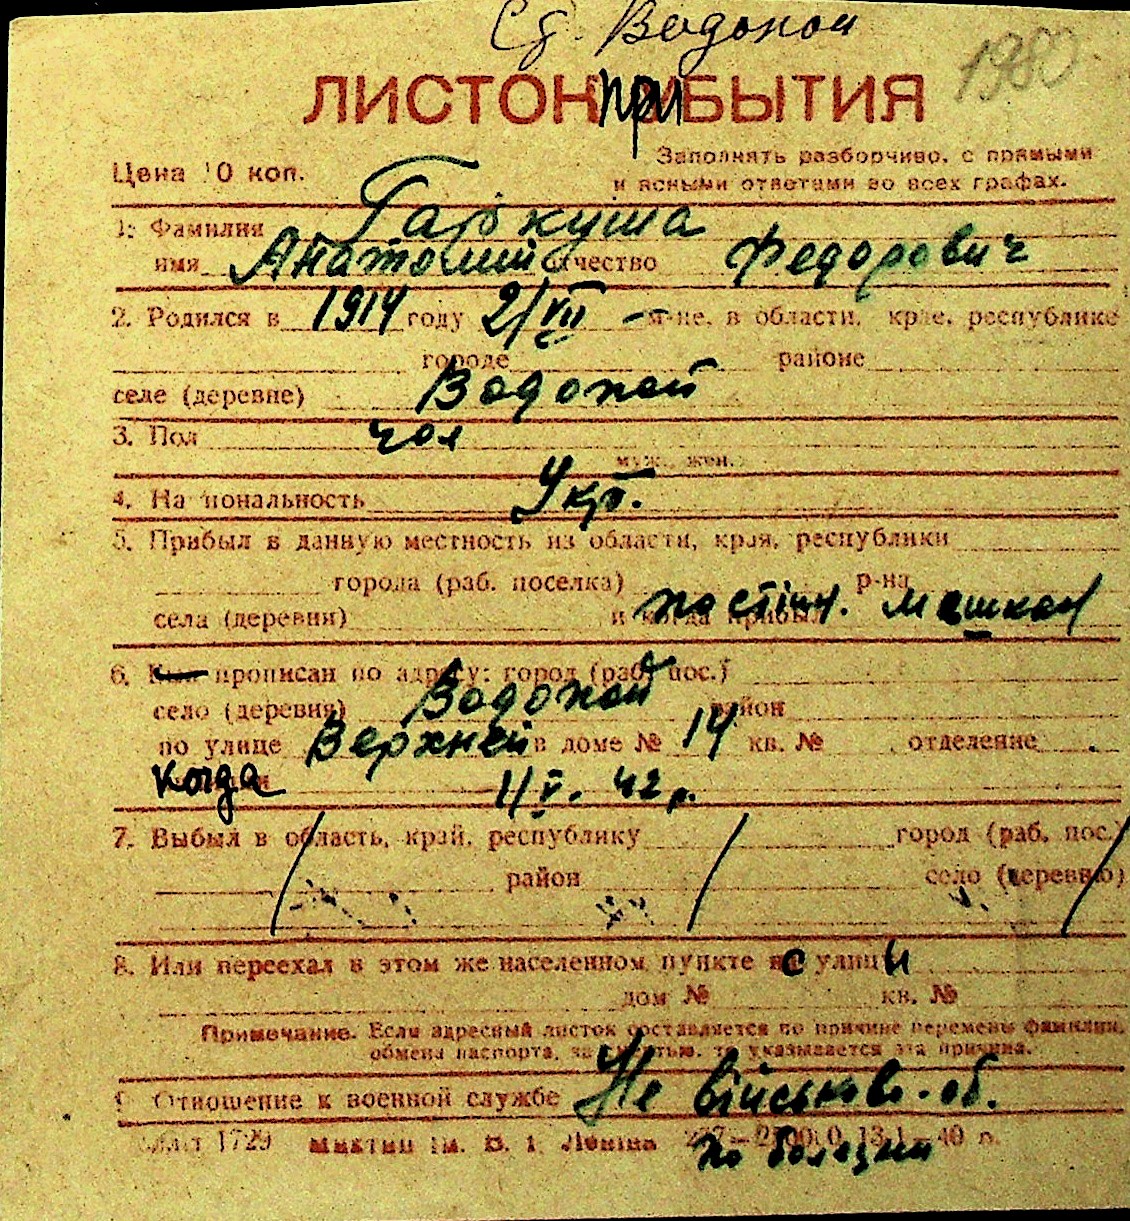 Сд. Водопой
1980
ЛИСТОК ПРИБЫТИЯ
Цена 10 коп.
Заполнять разборчиво, с прямыми
и ясными ответами во всех графах.
1. Фамилия Гаркуша
имя Анатолий отчество Федорович
2. Родился в 1914 году 2/VII м-це, в области, крае, республике
городе районе
селе (деревне) Водопой
3. Пол чол
муж., жен.
4. Национальность Укр.
5. Прибыл в данную местность из области, края, республики
города (раб. поселка) р-на
села (деревни) и когда прибыл постійн. мешкан
6. Был прописан по адресу: город (раб. пос.)
село (деревня) Водопой район
по улице Верхней в доме № 14 кв. № отделение
когда 1/V. 42 р.
7. Выбыл в область, край, республику город (раб. пос.)
район село (деревню)
8. Или переехал в этом же населенном пункте с улицы
дом № кв. №
Примечание. Если адресный листок составляется по причине перемены фамилии,
обмена паспорта, за смертью, то указывается эта причина.
9. Отношение к военной службе Не військово-об.
1729 им. В. І. Леніна 13.1—40 р.
по болезни